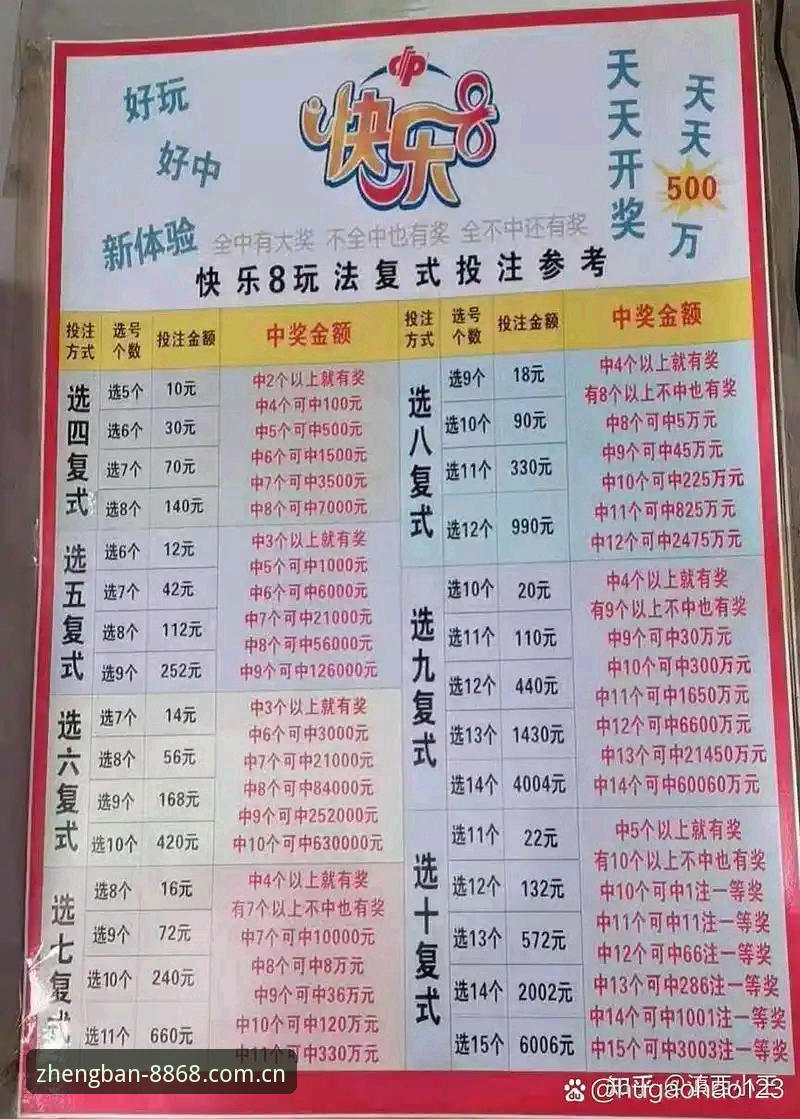 好玩
好中
新体验
快乐8
天天开奖
天天
500
万
全中有大奖 不全中也有奖 全不中还有奖
快乐8玩法复式投注参考
投注方式 选号个数 投注金额 中奖金额
选四复式
选5个 10元
选6个 30元
选7个 70元
选8个 140元
中2个以上就有奖
中4个可中100元
中5个可中500元
中6个可中1500元
中7个可中3500元
中8个可中7000元
选五复式
选6个 12元
选7个 42元
选8个 112元
选9个 252元
中3个以上就有奖
中5个可中1000元
中6个可中6000元
中7个可中21000元
中8个可中56000元
中9个可中126000元
选六复式
选7个 14元
选8个 56元
选9个 168元
选10个 420元
中3个以上就有奖
中6个可中3000元
中7个可中21000元
中8个可中84000元
中9个可中252000元
中10个可中630000元
选七复式
选8个 16元
选9个 72元
选10个 240元
选11个 660元
中4个以上就有奖
有7个以上不中也有奖
中7个可中10000元
中8个可中8万元
中9个可中36万元
中10个可中120万元
中11个可中330万元
投注方式 选号个数 投注金额 中奖金额
选八复式
选9个 18元
选10个 90元
选11个 330元
选12个 990元
中4个以上就有奖
有8个以上不中也有奖
中8个可中5万元
中9个可中45万元
中10个可中225万元
中11个可中825万元
中12个可中2475万元
选九复式
选10个 20元
选11个 110元
选12个 440元
选13个 1430元
选14个 4004元
中4个以上就有奖
有9个以上不中也有奖
中9个可中30万元
中10个可中300万元
中11个可中1650万元
中12个可中6600万元
中13个可中21450万元
中14个可中60060万元
选十复式
选11个 22元
选12个 132元
选13个 572元
选14个 2002元
选15个 6006元
中5个以上就有奖
有10个以上不中也有奖
中10个可中1注一等奖
中11个可中11注一等奖
中12个可中66注一等奖
中13个可中286注一等奖
中14个可中1001注一等奖
中15个可中3003注一等奖
zhengban-8868.com.cn